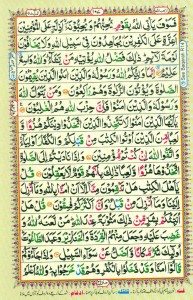 فَسَوْفَ يَأْتِي اللّٰهُ بِقَوْمٍ يُّحِبُّهُمْ وَيُحِبُّوْنَهٗٓ اَذِلَّةٍ عَلَى الْمُؤْمِنِيْنَ
اَعِزَّةٍ عَلَى الْكٰفِرِيْنَ يُجَاهِدُوْنَ فِيْ سَبِيْلِ اللّٰهِ وَلَا يَخَافُوْنَ
لَوْمَةَ لَآئِمٍ ذٰلِكَ فَضْلُ اللّٰهِ يُؤْتِيْهِ مَنْ يَّشَآءُ وَاللّٰهُ وَاسِعٌ عَلِيْمٌ
اِنَّمَا وَلِيُّكُمُ اللّٰهُ وَرَسُوْلُهٗ وَالَّذِيْنَ اٰمَنُوا الَّذِيْنَ يُقِيْمُوْنَ الصَّلٰوةَ
وَيُؤْتُوْنَ الزَّكٰوةَ وَهُمْ رٰكِعُوْنَ وَمَنْ يَّتَوَلَّ اللّٰهَ وَرَسُوْلَهٗ
وَالَّذِيْنَ اٰمَنُوْا فَاِنَّ حِزْبَ اللّٰهِ هُمُ الْغٰلِبُوْنَ يٰٓاَيُّهَا
الَّذِيْنَ اٰمَنُوْا لَا تَتَّخِذُوا الَّذِيْنَ اتَّخَذُوْا دِيْنَكُمْ هُزُوًا وَّلَعِبًا
مِّنَ الَّذِيْنَ اُوْتُوا الْكِتٰبَ مِنْ قَبْلِكُمْ وَالْكُفَّارَ اَوْلِيَآءَ
وَاتَّقُوا اللّٰهَ اِنْ كُنْتُمْ مُّؤْمِنِيْنَ وَاِذَا نَادَيْتُمْ اِلَى الصَّلٰوةِ
اتَّخَذُوْهَا هُزُوًا وَّلَعِبًا ذٰلِكَ بِاَنَّهُمْ قَوْمٌ لَّا يَعْقِلُوْنَ قُلْ
يٰٓاَهْلَ الْكِتٰبِ هَلْ تَنْقِمُوْنَ مِنَّآ اِلَّآ اَنْ اٰمَنَّا بِاللّٰهِ وَمَآ اُنْزِلَ
اِلَيْنَا وَمَآ اُنْزِلَ مِنْ قَبْلُ وَاَنَّ اَكْثَرَكُمْ فٰسِقُوْنَ قُلْ هَلْ
اُنَبِّئُكُمْ بِشَرٍّ مِّنْ ذٰلِكَ مَثُوْبَةً عِنْدَ اللّٰهِ مَنْ لَّعَنَهُ اللّٰهُ وَ
غَضِبَ عَلَيْهِ وَجَعَلَ مِنْهُمُ الْقِرَدَةَ وَالْخَنَازِيْرَ وَعَبَدَ الطَّاغُوْتَ
اُولٰٓئِكَ شَرٌّ مَّكَانًا وَّاَضَلُّ عَنْ سَوَآءِ السَّبِيْلِ وَاِذَا جَآءُوْكُمْ
قَالُوْٓا اٰمَنَّا وَقَدْ دَّخَلُوْا بِالْكُفْرِ وَهُمْ قَدْ خَرَجُوْا بِهٖ وَاللّٰهُ اَعْلَمُ